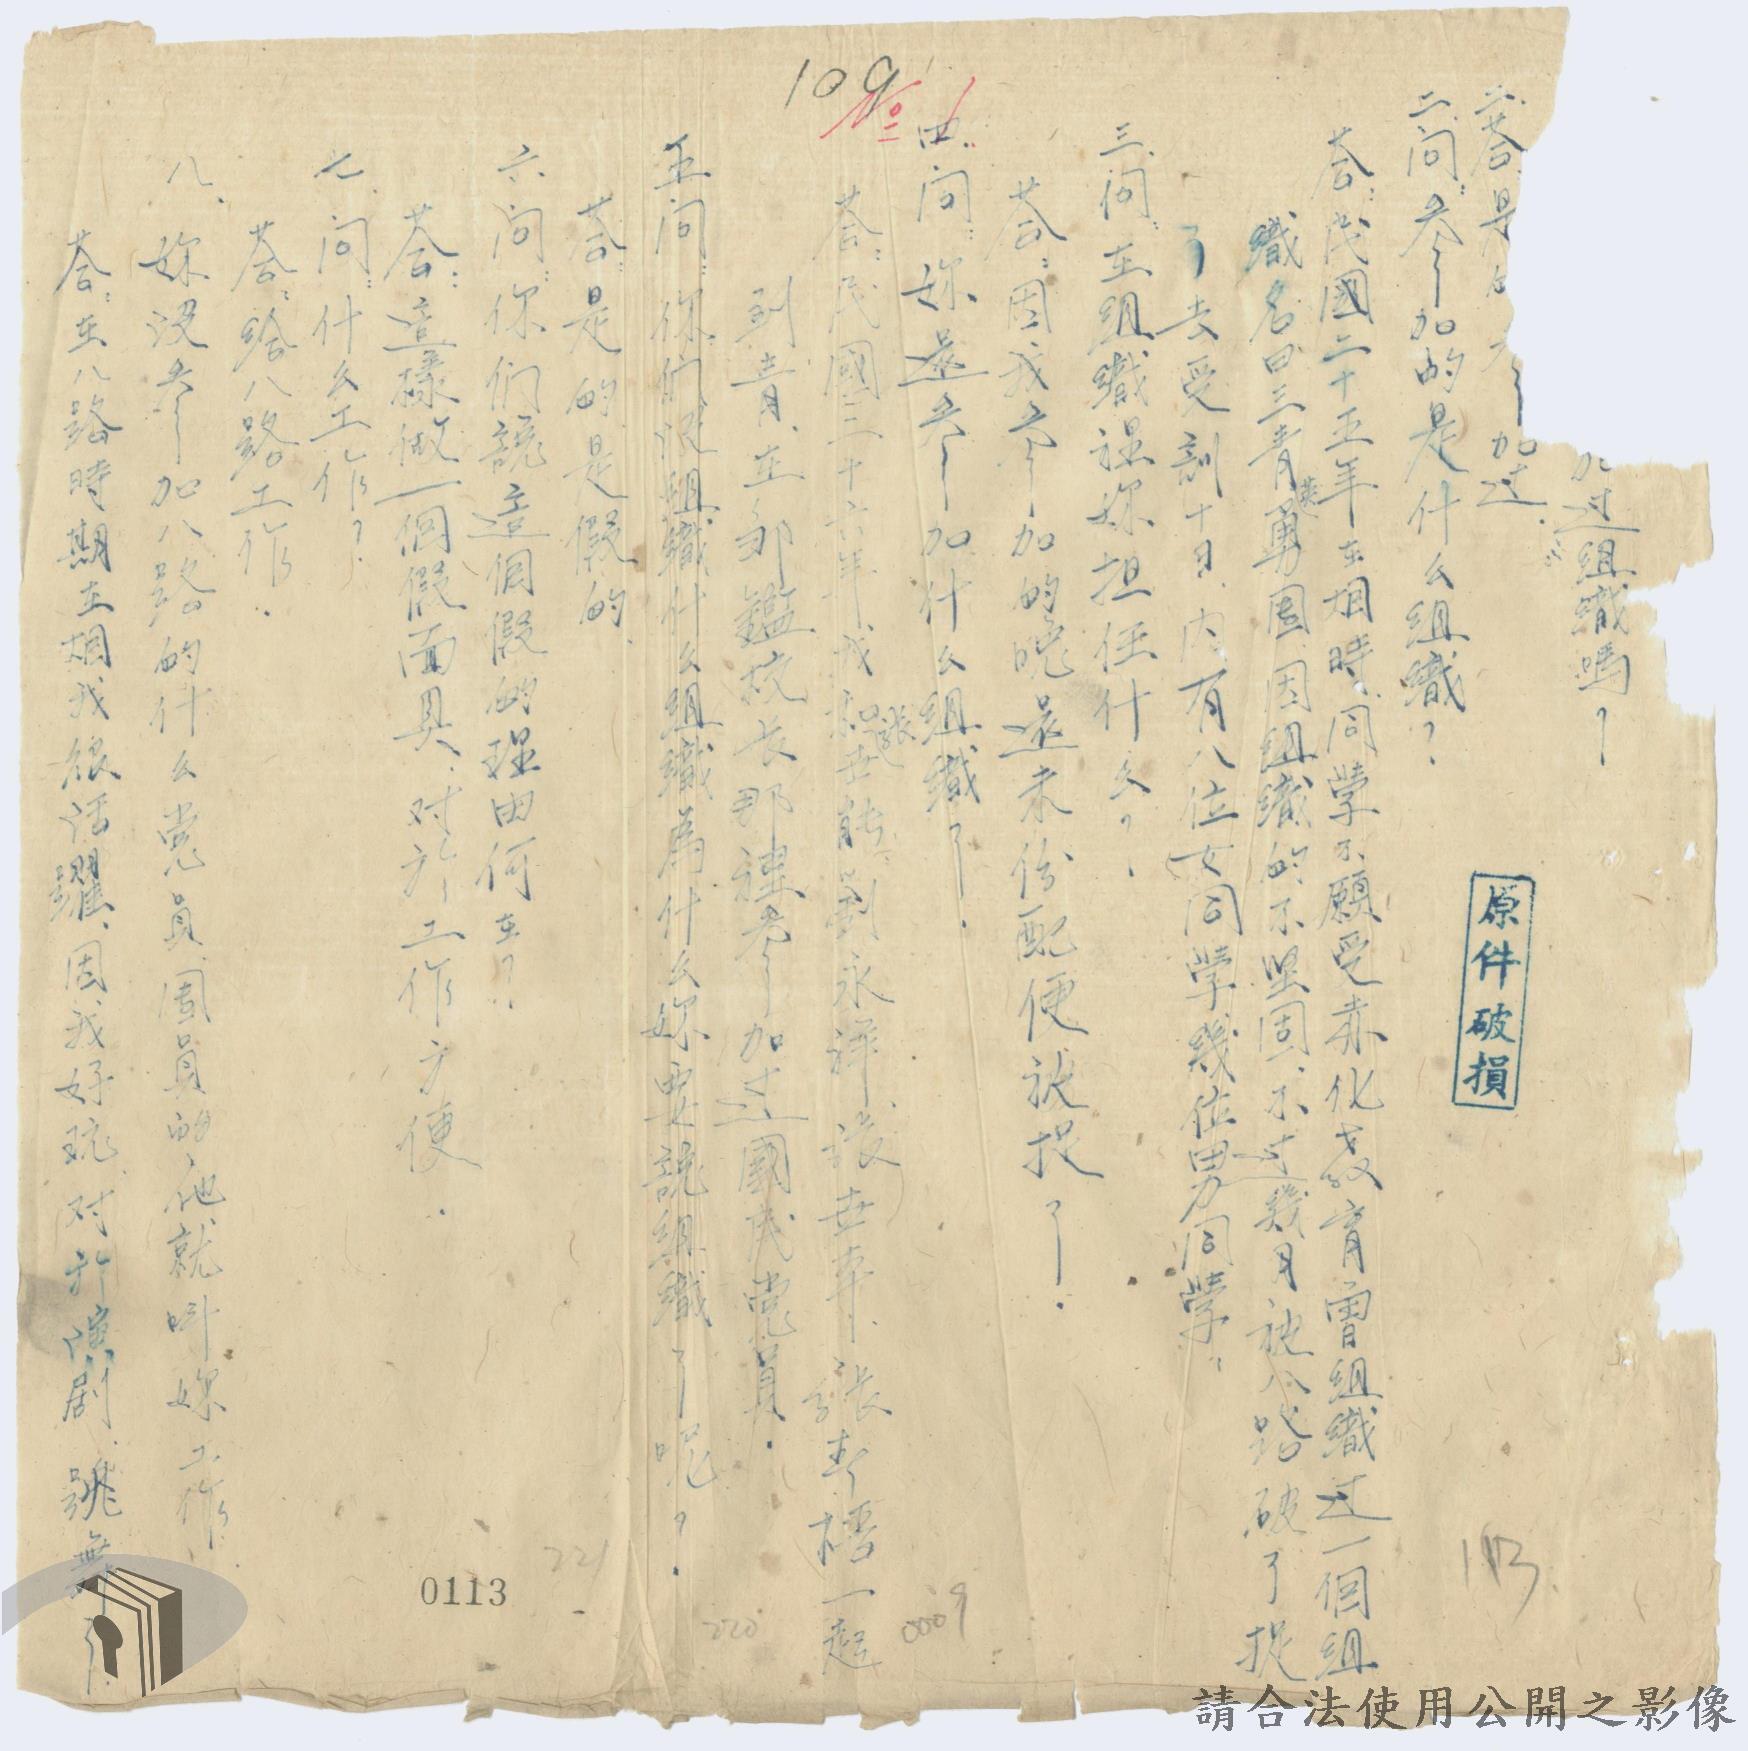 加过組織嗎？
答是的参加过.
二.問：参加的是什么組織？
答：民國二十五年在烟時.同學不願受赤化教育曾組織过一個組
織名曰三青英勇團.因組織的不坚固.不过幾月被八路破了捉
了去受訓十日.内有八位女同學幾位男同學.
三.問：在組織裡妳担任什么？
答：因我参加的晚還未份配便被捉了.
四.問：妳還参加什么組織了.
答：民國三十六年.我和張世能.劉永祥.張世幸.張春梧一起
到青.在鄒鑑校长那裡参加过國民党員.
五問：你們没組織什么組織為什么妳要說組織了呢？.
答：是的是假的.
六問：你們說這個假的理由何在？.
答：這樣做一個假面具.对於工作方便.
七.問：什么工作？
答：給八路工作.
八.妳没参加八路的什么党員.團員的.他就叫妳工作
答：在八路時期在烟我很活躍.因我好玩.对於演剧.跳舞了
原件破損
109
113
221
220
0009
0113
請合法使用公開之影像